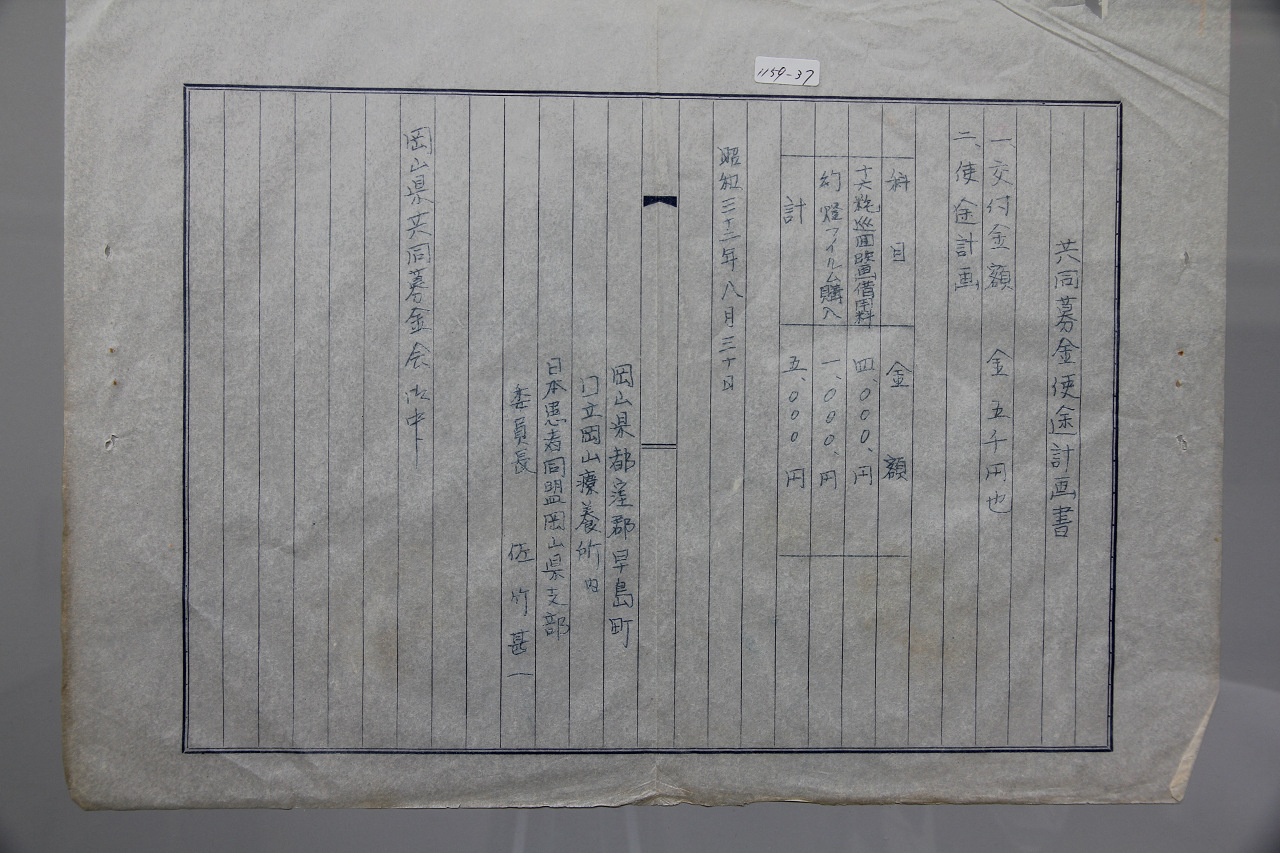 1159-37
共同募金使途計画書
一、交付金額 金五千円也
二、使途計画
科目 金額
十六粍巡回映画借用料 四、〇〇〇、円
幻燈フイルム購入 一、〇〇〇、円
計 五、〇〇〇 円
昭和三十二年八月三十日
岡山県都窪郡早島町
国立岡山療養所内
日本患者同盟岡山県支部
委員長 佐竹甚一
岡山県共同募金会御中